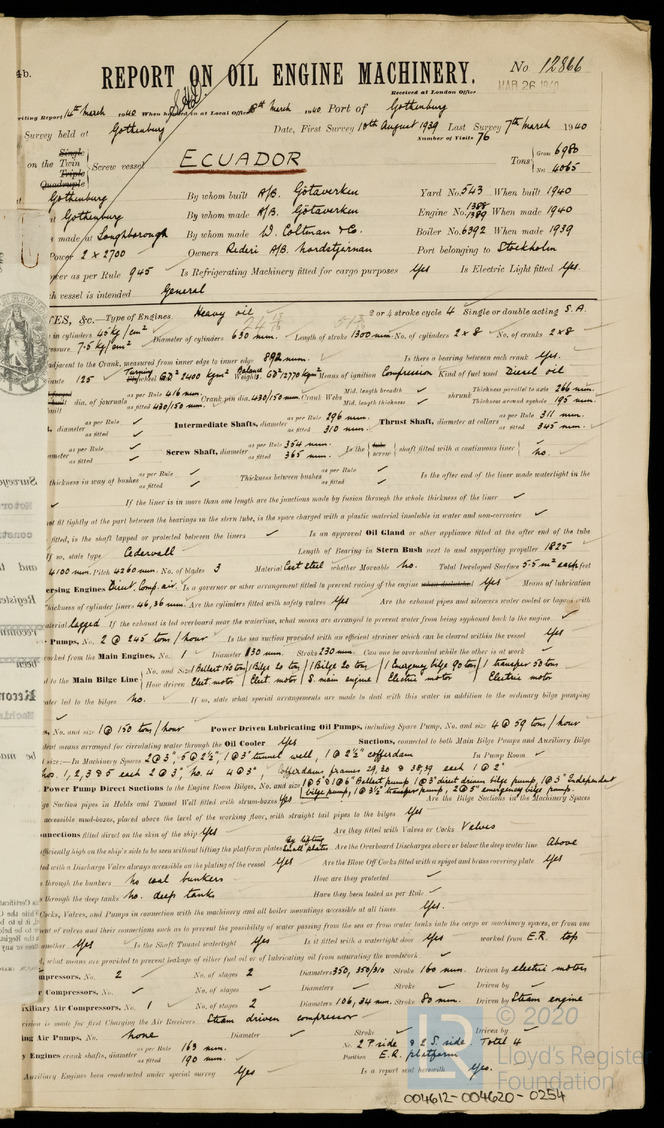 4b.
REPORT ON OIL ENGINE MACHINERY.
No 12866
Received at London Office MAR 26 1940
writing Report 14th March 1940 When handed in at Local Office March 1940 Port of Gothenburg
Survey held at Gothenburg Date, First Survey 10th August 1939 Last Survey 7th March 1940
Number of Visits 76
on the Single Twin Triple Quadruple Screw vessel ECUADOR Tons Gross 6980 Net 4065
Gothenburg By whom built A/B. Götaverken Yard No. 543 When built 1940
Gothenburg By whom made A/B. Götaverken Engine No. 1388 1389 When made 1940
made at Loughborough By whom made W. Coltman & Co. Boiler No. 6392 When made 1939
Power 2 x 2700 Owners Rederi A/B. Nordstjernan Port belonging to Stockholm
as per Rule 945 Is Refrigerating Machinery fitted for cargo purposes Yes Is Electric Light fitted Yes.
vessel is intended General
&c.—Type of Engines Heavy oil 2 or 4 stroke cycle 4 Single or double acting S.A.
in cylinders 45 kg/cm² Diameter of cylinders 630 mm. Length of stroke 1300 mm. No. of cylinders 2 x 8 No. of cranks 2 x 8
7.5 kg/cm²
adjacent to the Crank, measured from inner edge to inner edge 892 mm. Is there a bearing between each crank Yes.
125 Turning wheel GD² 2400 kgm² Balance Weights GD² 12770 kgm² Means of ignition Compression Kind of fuel used Diesel oil
dia. of journals as per Rule 416 mm. as fitted 430/150 mm. Crank pin dia. 430/150 mm. Crank Webs Mid. length breadth Mid. length thickness shrunk Thickness parallel to axis 266 mm. Thickness around eyehole 195 mm.
as per Rule as fitted Intermediate Shafts, diameter as per Rule 296 mm. as fitted 310 mm. Thrust Shaft, diameter at collars as per Rule 311 mm. as fitted 345 mm.
as per Rule as fitted Screw Shaft, diameter as per Rule 354 mm. as fitted 365 mm. Is the tube screw shaft fitted with a continuous liner no.
thickness in way of bushes as per Rule as fitted Thickness between bushes as per Rule as fitted Is the after end of the liner made watertight in the
If the liner is in more than one length are the junctions made by fusion through the whole thickness of the liner
not fit tightly at the part between the bearings in the stern tube, is the space charged with a plastic material insoluble in water and non-corrosive
fitted, is the shaft lapped or protected between the liners Is an approved Oil Gland or other appliance fitted at the after end of the tube
If so, state type Cedervall Length of Bearing in Stern Bush next to and supporting propeller 1825
4100 mm. Pitch 4260 mm. No. of blades 3 Material Cast steel whether Moveable no. Total Developed Surface 5.5 m² each feet
Engines Direct. Comp. air. Is a governor or other arrangement fitted to prevent racing of the engine when declutched Yes Means of lubrication
Thickness of cylinder liners 46, 36 mm. Are the cylinders fitted with safety valves Yes Are the exhaust pipes and silencers water cooled or lagged with
material lagged If the exhaust is led overboard near the waterline, what means are arranged to prevent water from being syphoned back to the engine
Pumps, No. 2 @ 245 tons/hour Is the sea suction provided with an efficient strainer which can be cleared within the vessel Yes
worked from the Main Engines, No. 1 Diameter 130 mm. Stroke 230 mm. Can one be overhauled while the other is at work
to the Main Bilge Line No. and Size 1 Ballast 150 tons 1 Bilge 20 tons 1 Bilge 20 tons 1 Emergency bilge 90 tons 1 Transfer 50 tons
How driven Elect. motor Elect. motor S. main engine Electric motor Electric motor
water led to the bilges no. If so, state what special arrangements are made to deal with this water in addition to the ordinary bilge pumping
No. and size 1 @ 150 tons/hour Power Driven Lubricating Oil Pumps, including Spare Pump, No. and size 4 @ 59 tons/hour
means arranged for circulating water through the Oil Cooler Yes Suctions, connected to both Main Bilge Pumps and Auxiliary Bilge
size:—In Machinery Spaces 2 @ 3", 5 @ 2½", 1 @ 3" tunnel well, 1 @ 2½" cofferdam In Pump Room
no. 1, 2, 3 & 5 each 2 @ 3", no. 4 4 @ 3", Cofferdams frames 29, 30 & 38, 39 each 1 @ 2"
Power Pump Direct Suctions to the Engine Room Bilges, No. and size 1 @ 5 & 1 @ 6" Ballast pump 1 @ 3" direct driven bilge pump, 1 @ 3" Independent bilge pump, 1 @ 3½" transfer pump, 2 @ 5" emergency bilge pump.
Suction pipes in Holds and Tunnel Well fitted with strum-boxes Yes Are the Bilge Suctions in the Machinery Spaces
accessible mud-boxes, placed above the level of the working floor, with straight tail pipes to the bilges Yes
fitted direct on the skin of the ship Yes Are they fitted with Valves or Cocks Valves
sufficiently high on the ship's side to be seen without lifting the platform plates by lifting small plates Are the Overboard Discharges above or below the deep water line Above
with a Discharge Valve always accessible on the plating of the vessel Yes Are the Blow Off Cocks fitted with a spigot and brass covering plate Yes
through the bunkers no coal bunkers How are they protected
through the deep tanks no. deep tanks Have they been tested as per Rule
Cocks, Valves, and Pumps in connection with the machinery and all boiler mountings accessible at all times Yes.
of valves and their connections such as to prevent the possibility of water passing from the sea or from water tanks into the cargo or machinery spaces, or from one
Yes Is the Shaft Tunnel watertight Yes Is it fitted with a watertight door Yes worked from E.R. top
what means are provided to prevent leakage of either fuel oil or lubricating oil from saturating the woodwork
Compressors, No. 2 No. of stages 2 Diameters 350, 350/310 Stroke 160 mm. Driven by electric motors
Compressors, No. No. of stages Diameters Stroke Driven by
Auxiliary Air Compressors, No. 1 No. of stages 2 Diameters 106, 34 mm. Stroke 80 mm. Driven by Steam engine
is made for first Charging the Air Receivers Steam driven compressor
Air Pumps, No. none Diameter Stroke Driven by
Engines crank shafts, diameter as per Rule 163 mm. as fitted 190 mm. No. 2 P. side & 2 S. side. Total 4 Position E.R. platform
Auxiliary Engines been constructed under special survey Yes Is a report sent herewith Yes.
© 2020
LR Lloyd's Register Foundation
004612-004620-0254